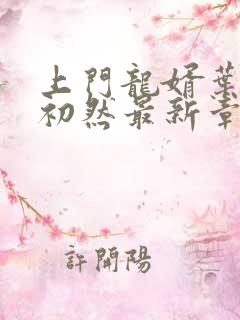 上門龍婿葉
初然最新章
許開陽